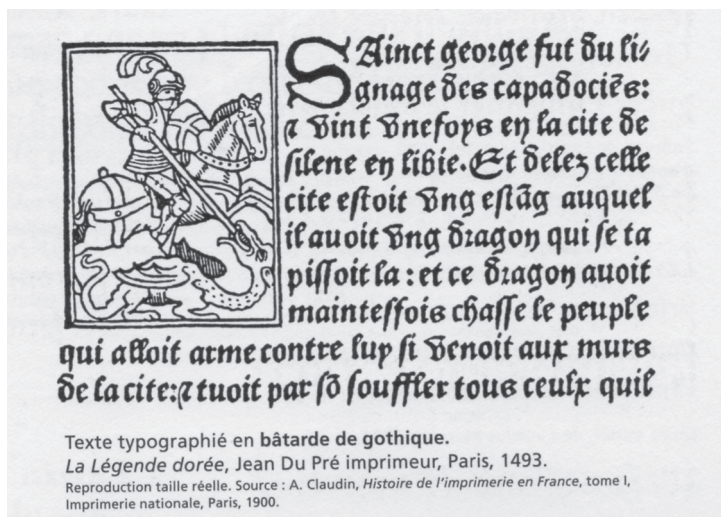 SAinct george fut du li⸗
gnage des capadociẽs:
⁊ vint vnefoys en la cite de
ſilene en libie. Et delez celle
cite eſtoit vng eſtãg auquel
il auoit vng dragon qui ſe ta
piſſoit la : et ce dragon auoit
mainteſfois chaſſe le peuple
qui alloit arme contre luy ſi venoit aux murs
de la cite: ⁊ tuoit par ſõ ſouffler tous ceulx quil
Texte typographié en bâtarde de gothique.
La Légende dorée, Jean Du Pré imprimeur, Paris, 1493.
Reproduction taille réelle. Source : A. Claudin, Histoire de l'imprimerie en France, tome I,
Imprimerie nationale, Paris, 1900.